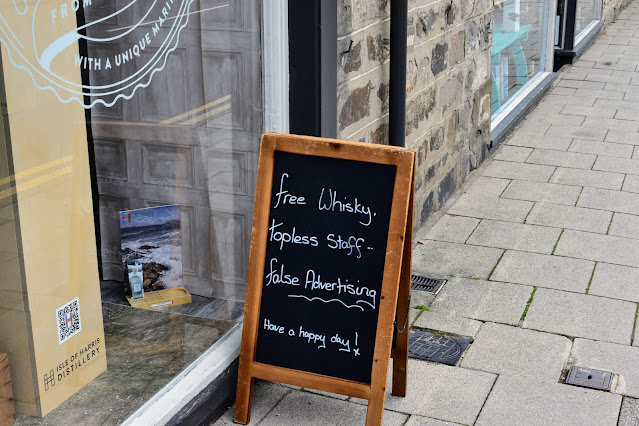 FROM
WITH A UNIQUE MARI
free Whisky.
topless Staff--
false Advertising
Have a happy day!
x
ISLE OF HARRIS
DISTILLERY